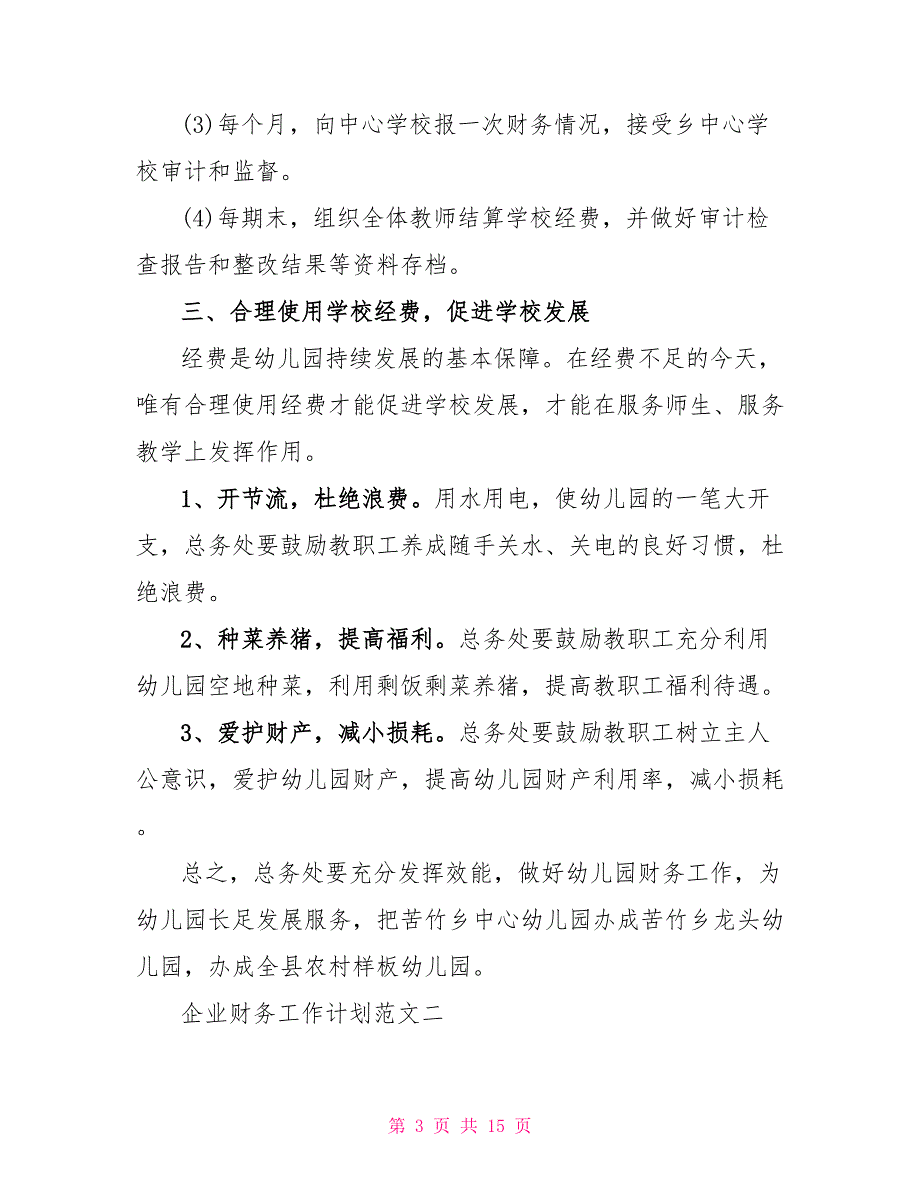 (3)每个月，向中心学校报一次财务情况，接受乡中心学
校审计和监督。
(4)每期末，组织全体教师结算学校经费，并做好审计检
查报告和整改结果等资料存档。
三、合理使用学校经费，促进学校发展
经费是幼儿园持续发展的基本保障。在经费不足的今天，
唯有合理使用经费才能促进学校发展，才能在服务师生、服务
教学上发挥作用。
1、开节流，杜绝浪费。用水用电，使幼儿园的一笔大开
支，总务处要鼓励教职工养成随手关水、关电的良好习惯，杜
绝浪费。
2、种菜养猪，提高福利。总务处要鼓励教职工充分利用
幼儿园空地种菜，利用剩饭剩菜养猪，提高教职工福利待遇。
3、爱护财产，减小损耗。总务处要鼓励教职工树立主人
公意识，爱护幼儿园财产，提高幼儿园财产利用率，减小损耗
。
总之，总务处要充分发挥效能，做好幼儿园财务工作，为
幼儿园长足发展服务，把苦竹乡中心幼儿园办成苦竹乡龙头幼
儿园，办成全县农村样板幼儿园。
企业财务工作计划范文二
第 3 页 共 15 页